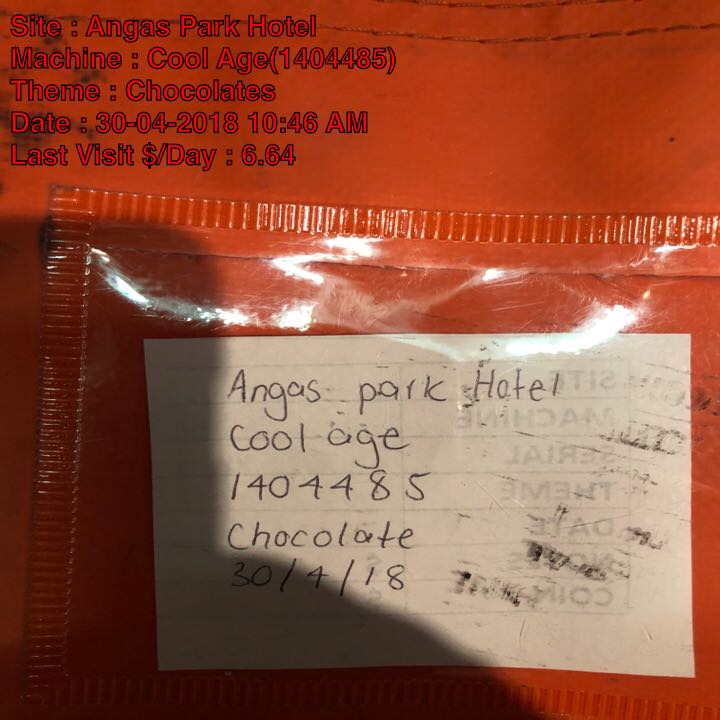 Site : Angas Park Hotel
Machine : Cool Age(1404485)
Theme : Chocolates
Date : 30-04-2018 10:46 AM
Last Visit $/Day : 6.64
Angas park Hotel
Cool age
1404485
Chocolate
30/4/18
SITE
MACHINE
SERIAL
THEME
DATE
NOTES
COIN